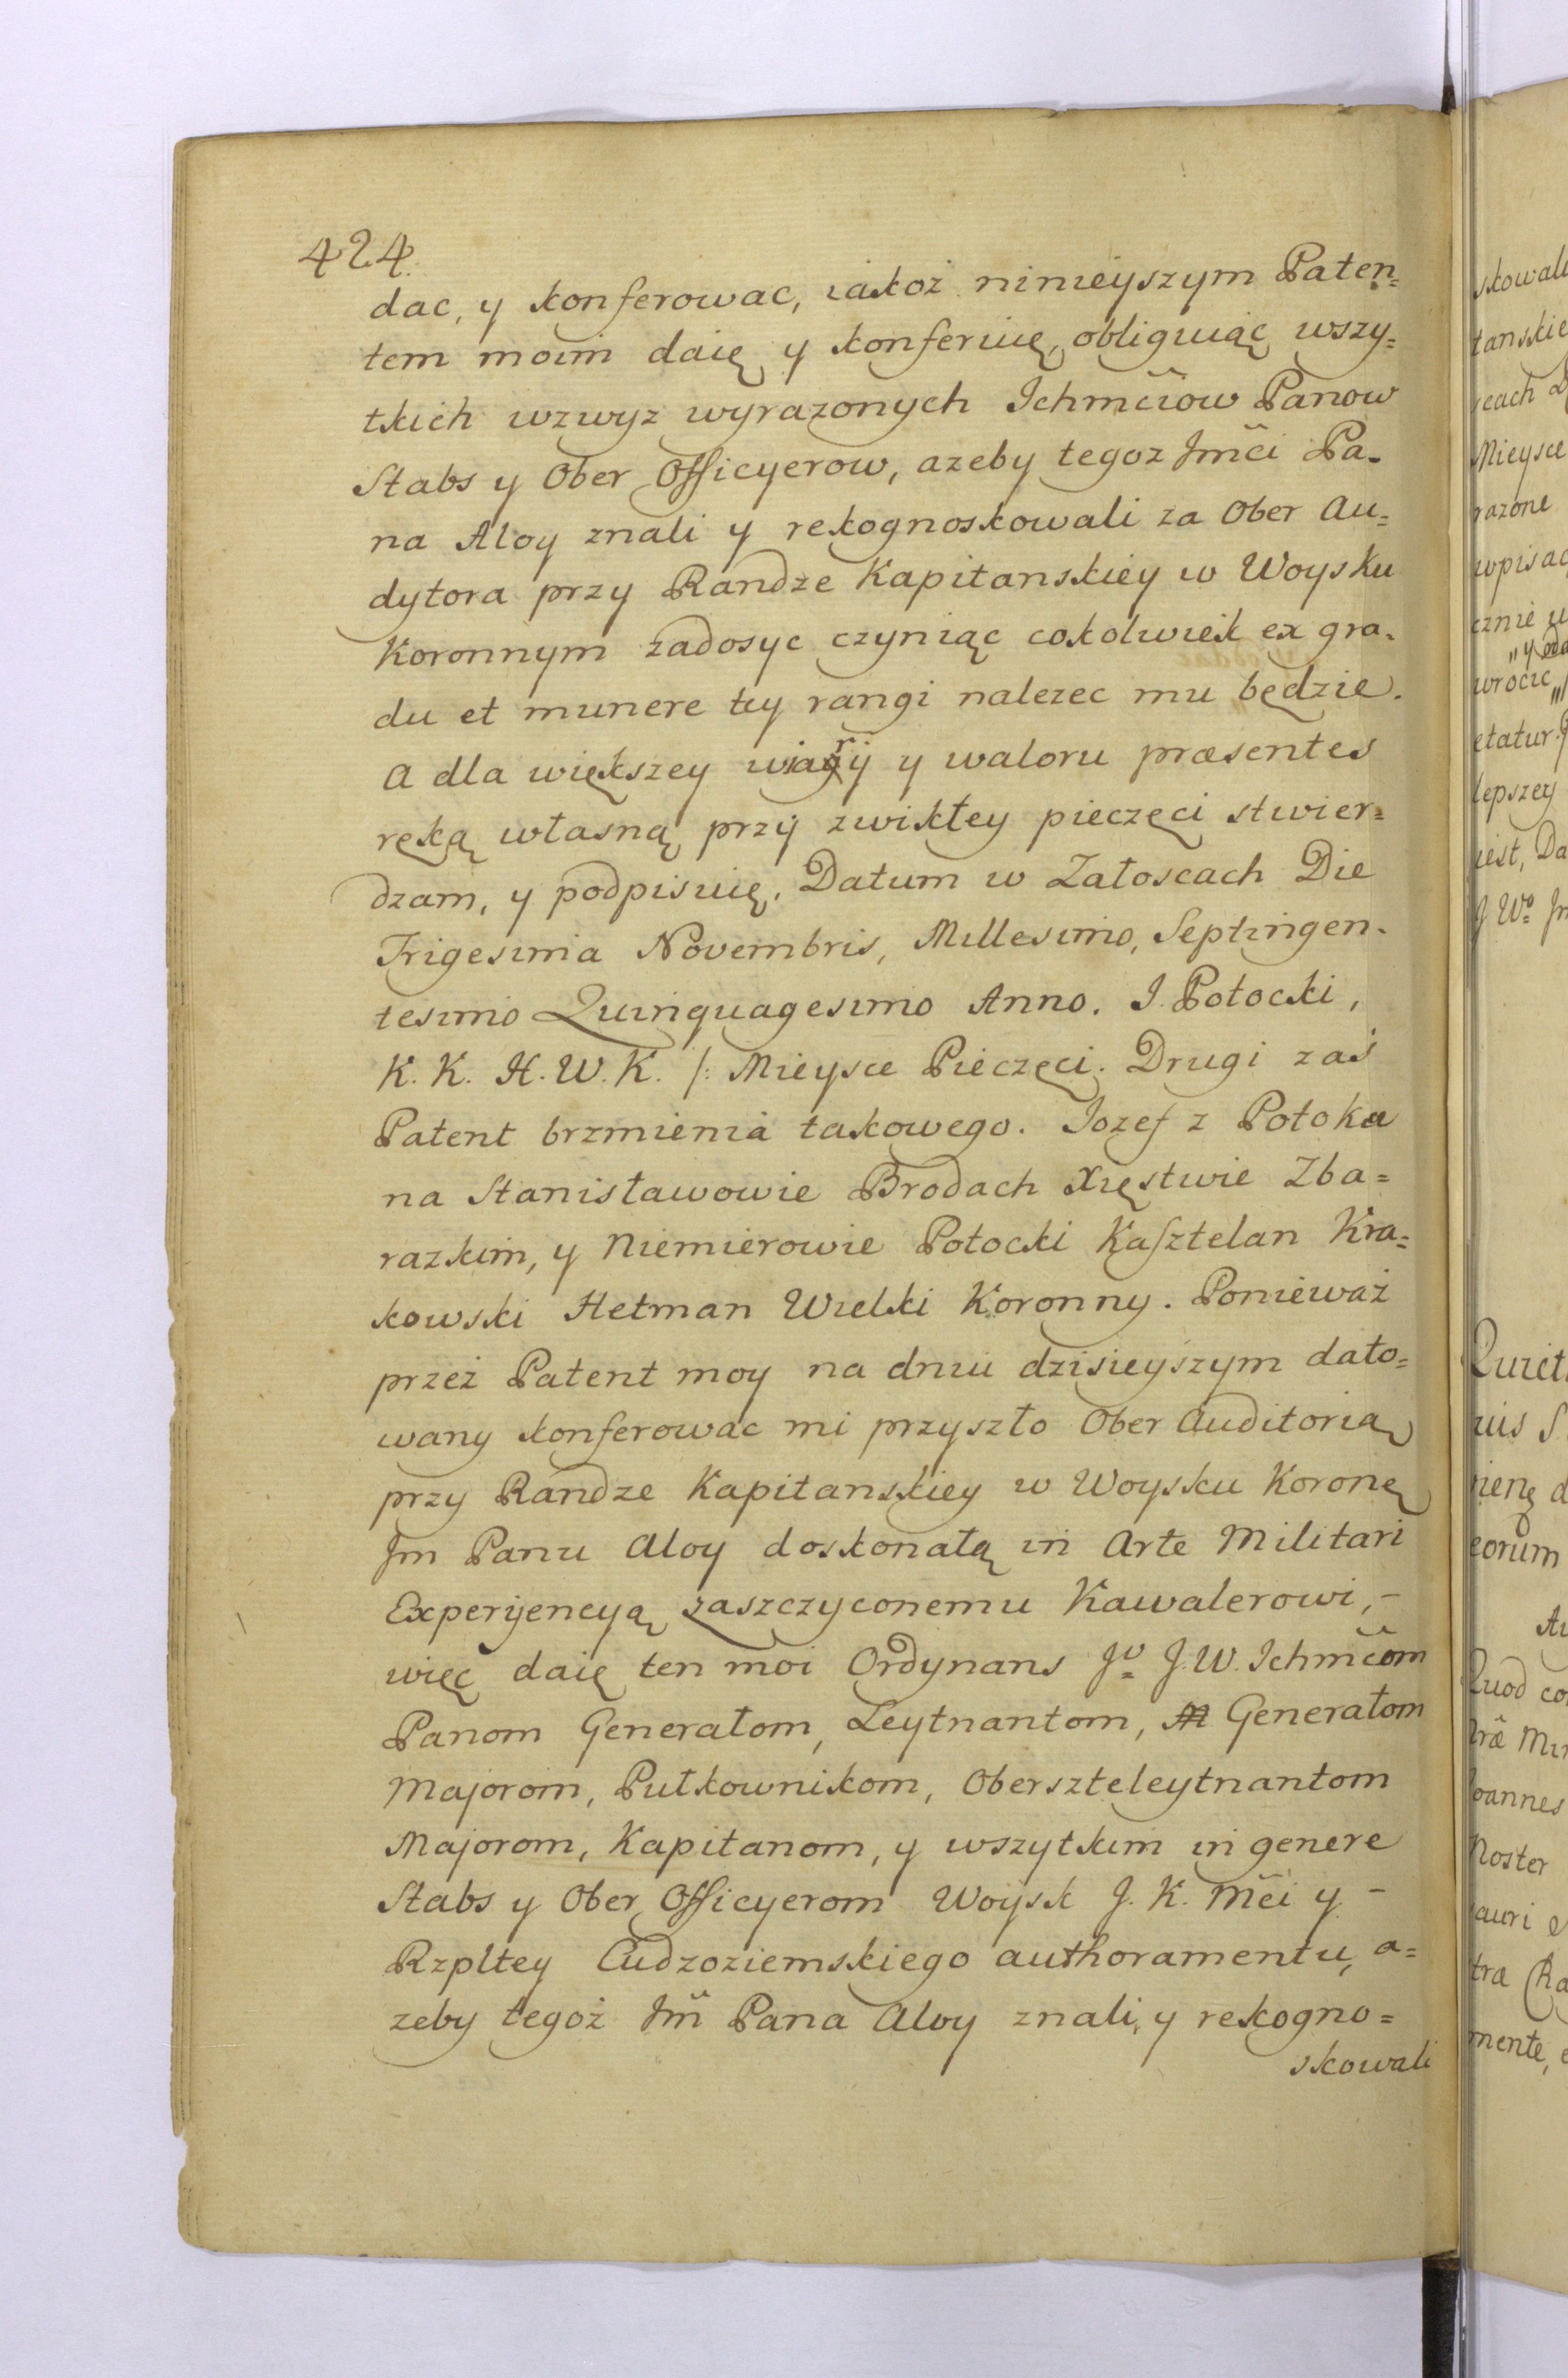 424.
dac, y konferowac, iakoż ninieyszym Paten=
tem moim daię y konferuię, obliguiąc wszy=
tkich wzwyz wyrazonych Ichmciow Panow
Stabs y Ober Officyerow, azeby tegoz Jmci Pa=
na Aloy znali y rekognoskowali za Ober Au=
dytora przy Randze Kapitanskiey w Woysku
Koronnym zadosyc czyniąc cokolwiek ex gra=
du et munere tey rangi nalezec mu będzie.
A dla większey wiary y waloru præsentes
ręką własną przy zwikłey pieczęci stwier=
dzam, y podpisuię. Datum w Załoscach Die
Trigesima Novembris, Millesimo, Septingen=
tesimo Quinquagesimo Anno. I. Potocki,
K. K. H. W. K. /: Mieysce Pieczęci. Drugi zaś
Patent brzmienia takowego. Iozef z Potoka
na Stanisławowie Brodach Xięstwie Zba=
razkim, y Niemierowie Potocki Kasztelan Kra=
kowski Hetman Wielki Koronny. Ponieważ
przeż Patent moy na dniu dzisieyszym dato=
wany konferowac mi przyszło Ober Auditorią
przy Randze Kapitanskiey w Woysku Koronę
Jm Panu Aloy doskonałą in Arte Militari
Experyencyą zaszczyconemu Kawalerowi, -
więc daię ten moi Ordynans Jo J.W. Ichmcom
Panom Generałom, Leytnantom, M Generałom
Majorom, Pułkownikom, Oberszteleytnantom
Majorom, Kapitanom, y wszytkim in genere
Stabs y Ober Officyerom Woysk J. K. Mci y -
Rzpltey Cudzoziemskiego authoramentu, a=
zeby tegoż Jm Pana Aloy znali, y rekogno=
skowali
skowali
tanskie
Mieysce
razone
lepszey
iest, Da
eorum
Quod co
oannes
Noster
mente,